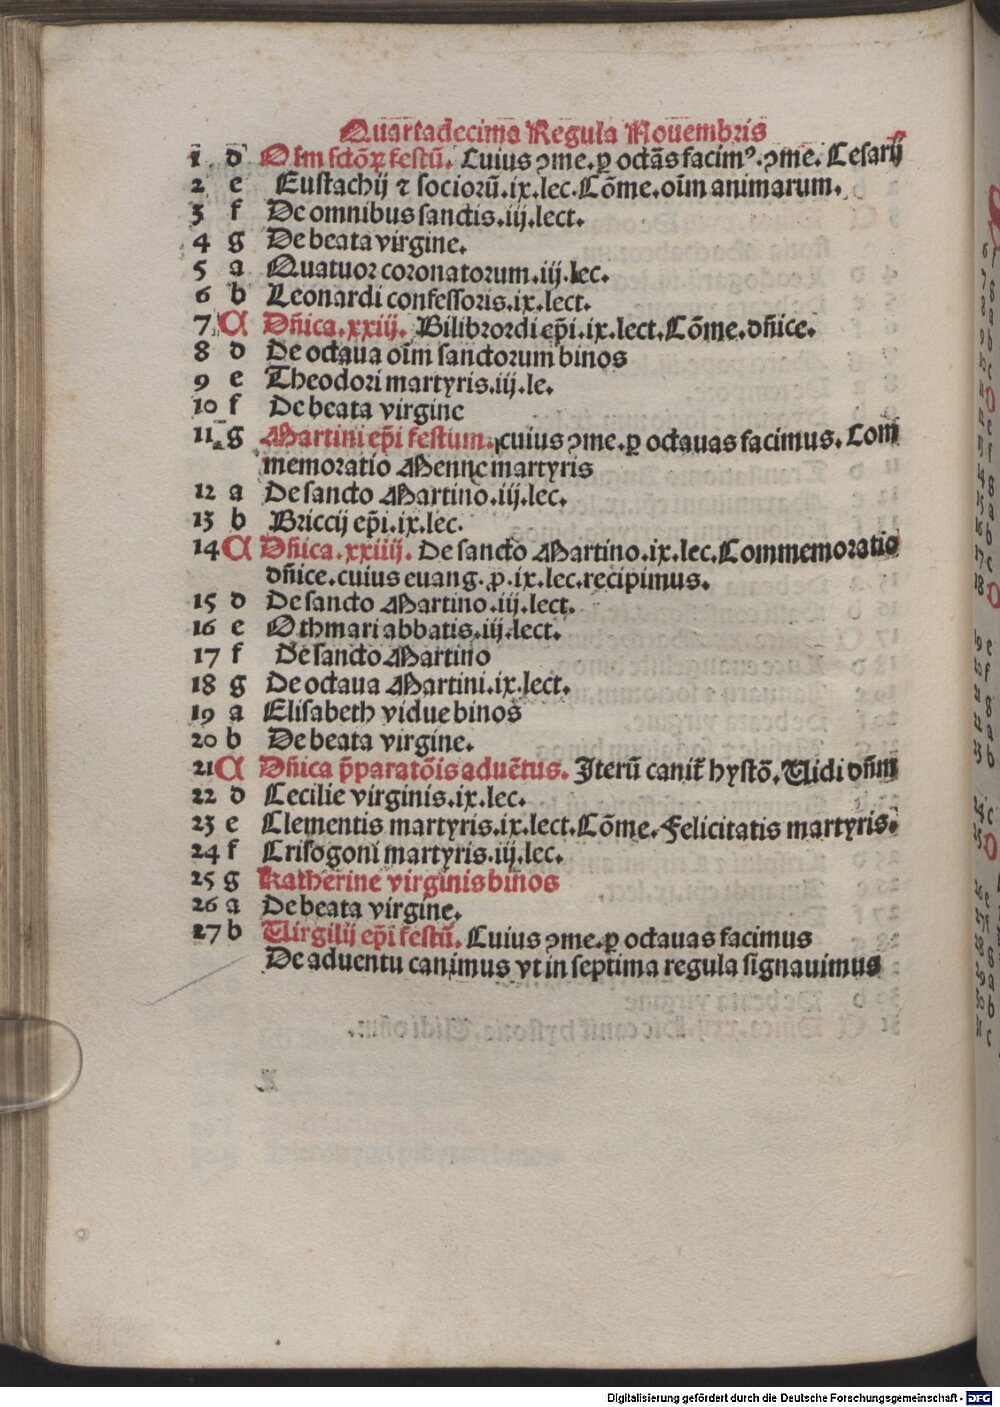 Quartadecima Regula Nouembris
1 d Oim sctōꝝ festū. Cuius ↄme. ꝑ octās facimꝰ. ↄme. Cesarij
2 e Eustachij ⁊ socioru̅.ix.lec. Cōme. oīm animarum.
3 f De omnibus sanctis.iij.lect.
4 g De beata virgine.
5 a Quatuor coronatorum.iij.lec.
6 b Leonardi confessoris.ix.lect.
7 A Dn̄ica.xxiij. Bilibrordi ep̄i.ix.lect. Cōme. dn̄ice.
8 d De octaua oīm sanctorum binos
9 e Theodori martyris.iij.le.
10 f De beata virgine
11 g Martini ep̄i festium. cuius ↄme. ꝑ octauas facimus. Com
memoratio Mennc martyris
12 a De sancto Martino.iij.lec.
13 b Briccij ep̄i.ix.lec.
14 A Dn̄ica.xxiiij. De sancto Martino.ix.lec. Commemoratio
dn̄ice. cuius euang. ꝓ.ix.lec. recipimus.
15 d De sancto Martino.iij.lect.
16 e Othmari abbatis.iij.lect.
17 f De sancto Martino
18 g De octaua Martini.ix.lect.
19 a Elisabeth vidue binos
20 b De beata virgine.
21 A Dn̄ica p̄paratōis aduētus. Iterū canit̄ hystō. Uidi dn̄m
22 d Cecilie virginis.ix.lec.
23 e Clementis martyris.ix.lect. Cōme. Felicitatis martyris.
24 f Crisogoni martyris.iij.lec.
25 g Katherine virginis binos
26 a De beata virgine.
27 b Uirgilij ep̄i festū. Cuius ↄme. ꝑ octauas facimus
De aduentu canimus vt in septima regula signauimus
Digitalisierung gefördert durch die Deutsche Forschungsgemeinschaft - DFG